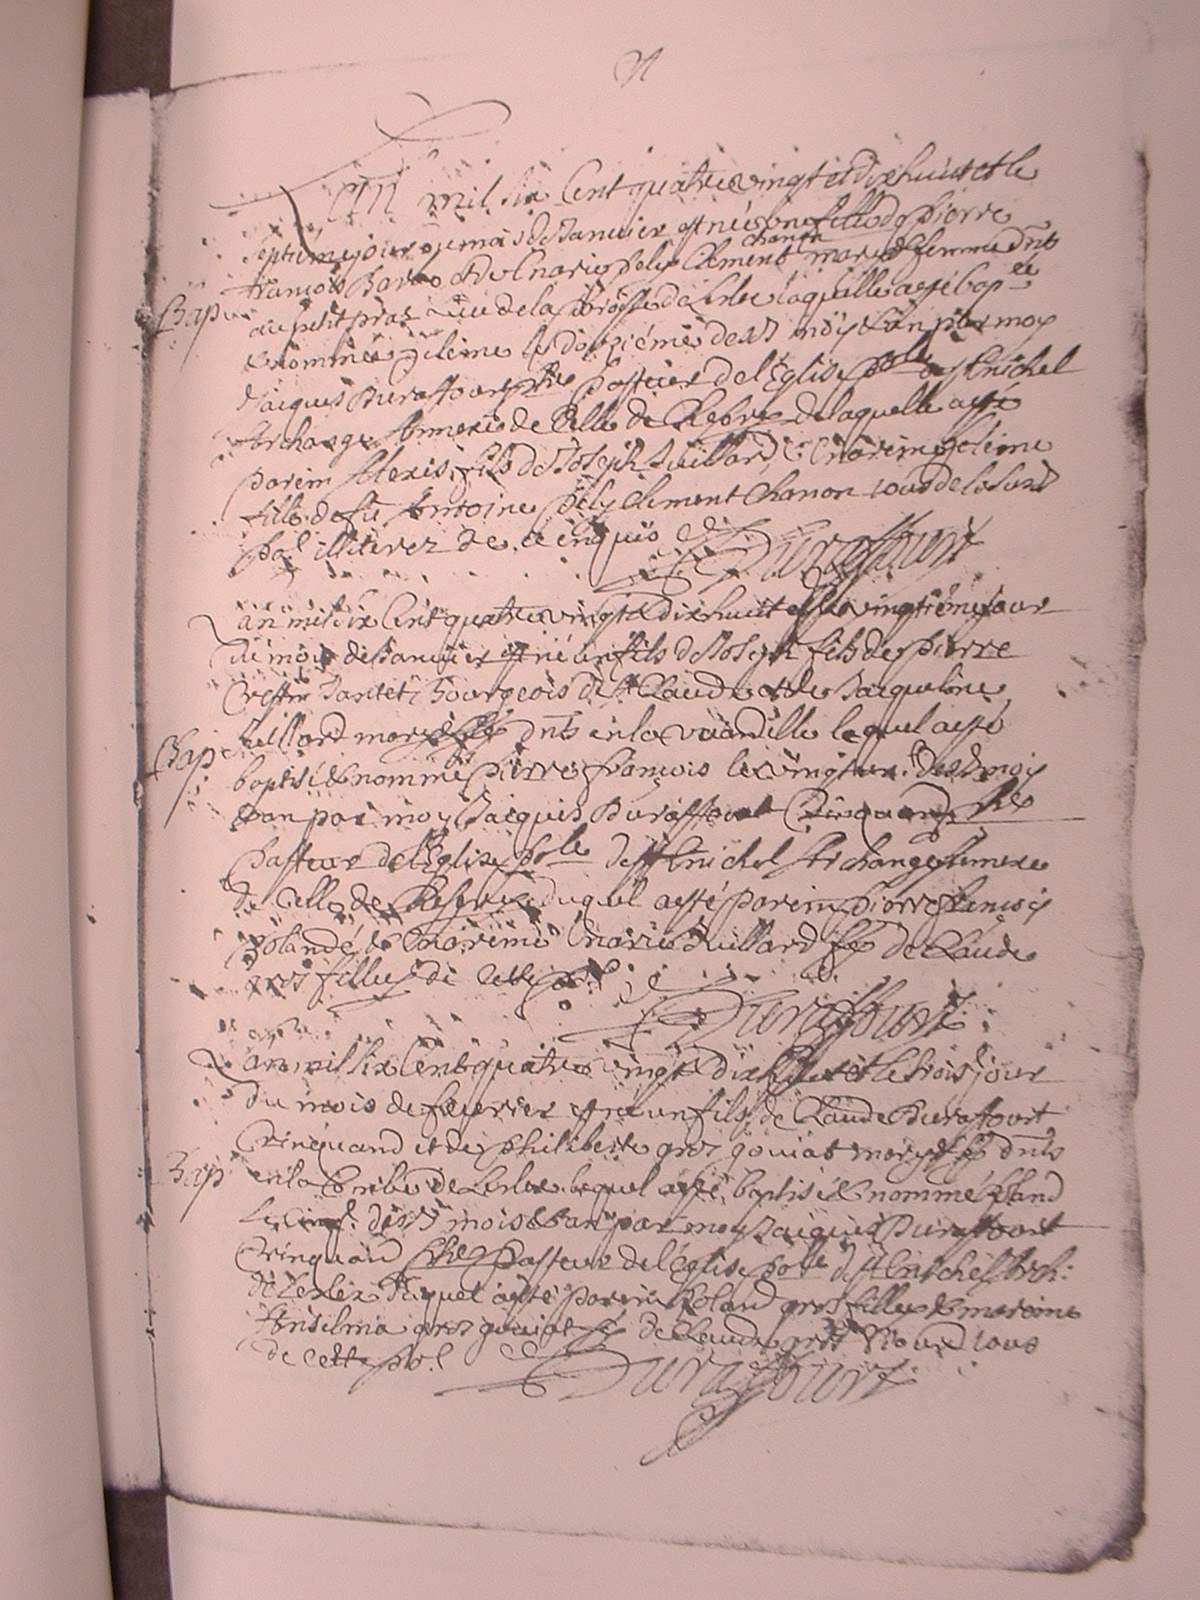 L'an mil six Cent quatre vingt et dix huict et le
septiéme jour du mois de Januier est née une fille de Pierre
françois Barbo et de Marie pely Clement chanon mary & femme dnts
au petit praz lieu de la paroisse de Lelex laquelle a esté bap.ée
& nommée heléine le douziéme desd moÿ & an par moy
Jacques Duraffourt pbre pasteur de l'Eglise po.le de st Michel
Archange Annexe de Celle de de laquelle a esté
parein Alexis fils de Joseph Juillard, & mareine heléine
fille de fû Antoine pely Clement Chanon tous de la susd
po.l illiterez de ce enquis
Duraffourt
L'an mil six Cent quatre vingt & dix huict et le vingtiéme jour
du mois de Januier est né un fils de Joseph fils de pierre
Crestin Jantet Bourgeois de st Claude et de Jacqueline
Juillard mary & fe dnts en la laquel a esté
baptisé & nommé pierre françois le vingt un. desd moiy
& an par moy Jacques Duraffourt Crinquand pbre
pasteur de l'Eglise po.le de st Michel Archange Annexe
de Celle de duquel a esté parein pierre françois
& mareine Marie Juillard fe de Claude
gros fillex de cette po.l
Duraffourt
L'an mil six Cent quatre vingt & dix huict et le trois jour
du mois de feurier est né un fils de Claude Duraffourt
Crinquand et de philiberte gros goujat mary & fe dnts
en la Combe de Lelex lequel a esté baptisé & nommé Roland
le cinq. desd mois & an par moy Jacques Duraffourt
Crinquand pbre pasteur de l'Eglise po.le de st Michel Arch:
de Lelex duquel a esté parein Roland gros fillex & mareine
Anselma gros goujat fe de Claude gros tous
de cette po.l
Duraffourt
Bap
Bap
Bap